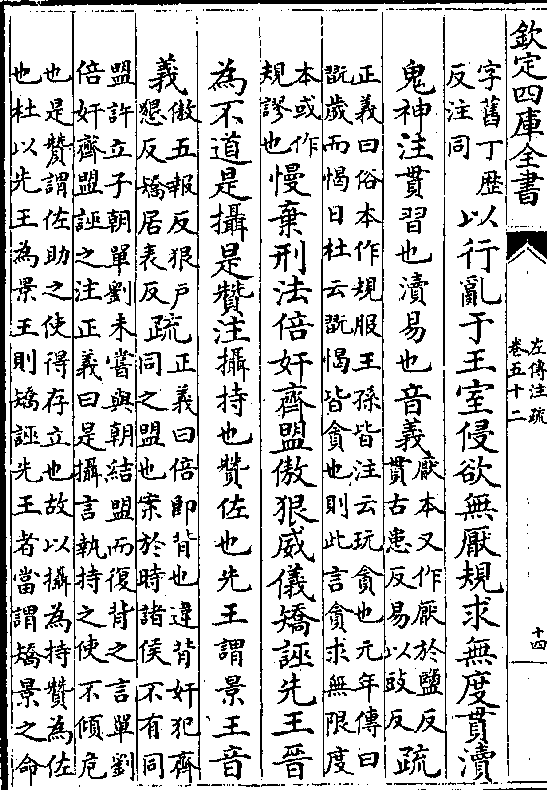 欽定四庫全書
左傳注疏
卷五十二
十四
字舊丁歷
反注同
以行亂于王室侵欲無厭規求無度貫瀆
鬼神注貫習也瀆易也音義
厭本又作厭於鹽反
貫古患反易以豉反
疏
正義曰俗本作規服王孫皆注云玩貪也元年傳曰
翫歲而愒日杜云翫愒皆貪也則此言貪求無限度
本或作
規謬也
慢棄刑法倍奸齊盟傲狠威儀矯誣先王晉
為不道是攝是贊注攝持也贊佐也先王謂景王音
義
傲五報反狠戶
懇反矯居表反
疏
正義曰倍即背也違背奸犯齊
同之盟也案於時諸侯不有同
盟許立子朝單劉未嘗與朝結盟而復背之言單劉
倍奸齊盟誣之注正義曰是攝言執持之使不傾危
也是贊謂佐助之使得存立也故以攝為持贊為佐
也杜以先王為景王則矯誣先王者當謂矯景之命